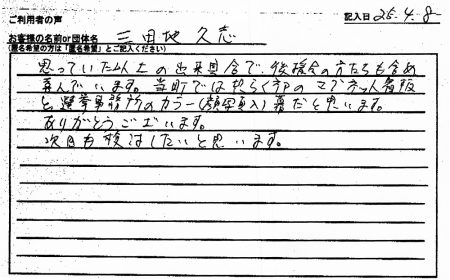 ご利用者の声
記入日 25.4.8
お客様の名前or団体名 三田地 久志
(匿名希望の方は「匿名希望」とご記入ください)
思っていた以上の出来具合で、後援会の方たちも含め
喜んでいます。当町では恐らく初のマグネット看板
と選挙事務所のカラー(顔写真入)幕だと思います。
ありがとうございます。
次回も検討したいと思います。